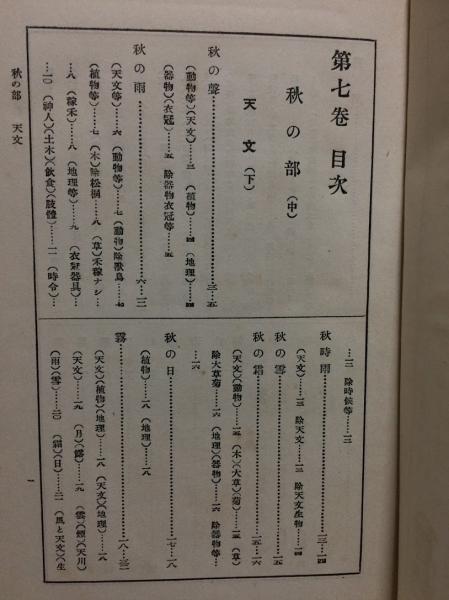 第七卷 目次
秋の部（中）
天文（下）
秋の聲……三―五
（動物等）（天文）……三 （植物）……四 （地理）……四
（器物）（衣冠）……五 除器物衣冠等……五
秋の雨……六―一二
（天文等）……六 （動物等）……七 （動物）除獸鳥……七
（植物等）……七 （木）除松桐……八 （草）禾稼ナシ…
…八 （稼禾）……八 （地理等）……九 （衣冠器具）…
…一〇 （神人）（土木）（飮食）（肢體）……一一 （時令）…
…一二 除時候等……一三
秋時雨……一三―一四
（天文）……一三 除天文……一三 除天文生物……一四
秋の雪……一五
秋の霜……一五―一六
（天文）（動物）……一五 （木）（大草）（菊）……一五 （草）
除大草菊……一六 （地理）（器物）……一六 除器物等…
…一六
秋の日……一七―一八
（植物）……一八 （地理）……一八
霧……一八―三二
（天文）（植物）（地理）……一八 （天文）（地理）……一八
（天文）……一九 （月）（露）……一九 （雲）（煙）（天川）
（雨）（雪）……二〇 （霜）（日）……二一 （風と天文）（生
秋の部 天文
一